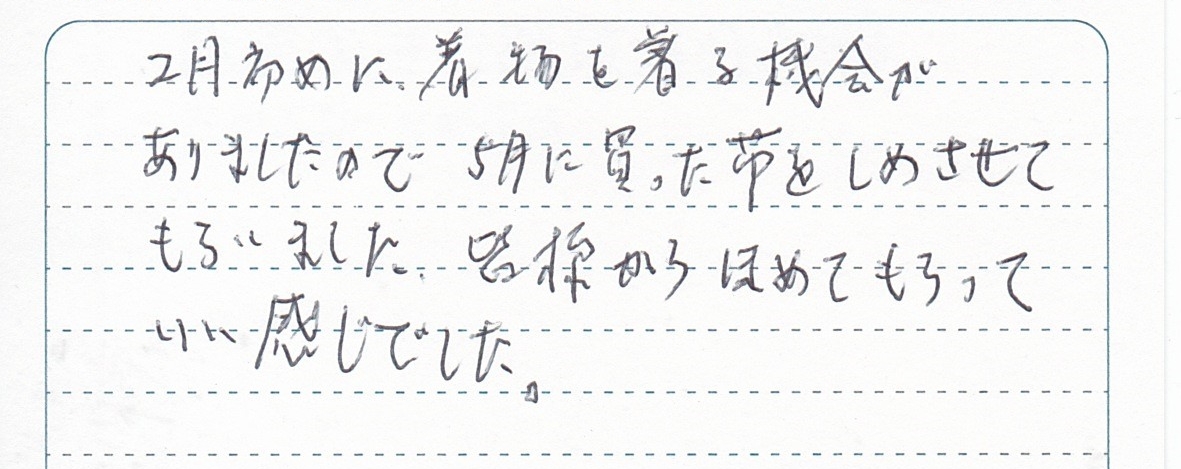 2月初めに、着物を着る機会が
ありましたので 5月に買った帯をしめさせて
もらいました。皆様からほめてもらって
いい感じでした。